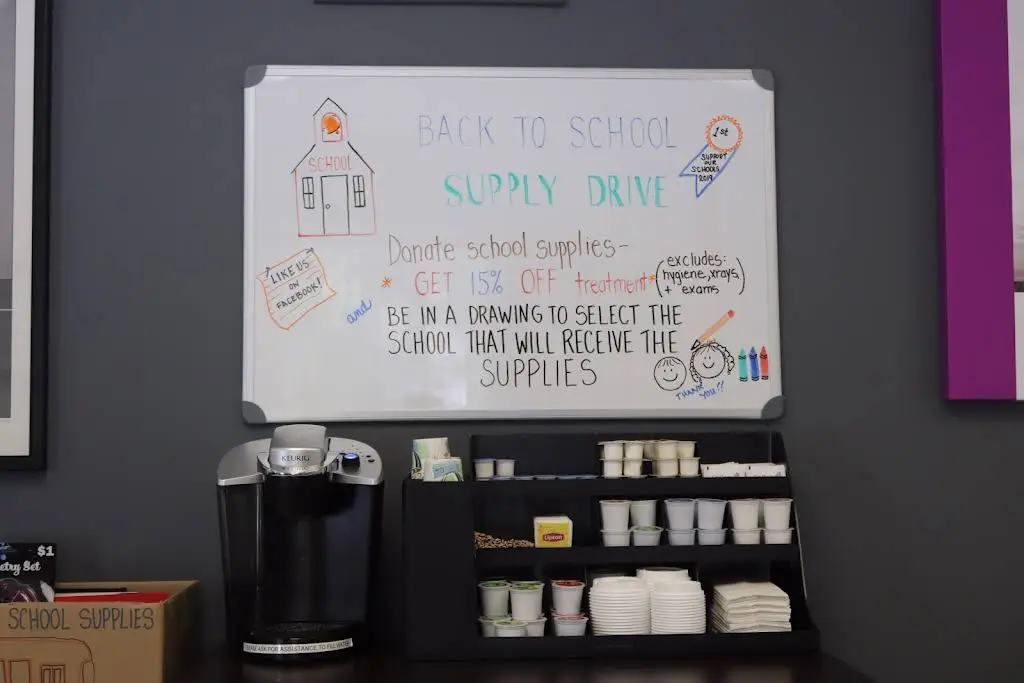 BACK TO SCHOOL
SUPPLY DRIVE
SCHOOL
1st
SUPPORT
OUR
SCHOOLS
2019
Donate school supplies-
* GET 15% OFF treatment*
(excludes:
hygiene, xrays,
+ exams)
LIKE US
ON
FACEBOOK!
and
BE IN A DRAWING TO SELECT THE
SCHOOL THAT WILL RECEIVE THE
SUPPLIES
THANK
YOU!!
KEURIG
Lipton
$1
etry Set
SCHOOL SUPPLIES
PLEASE ASK FOR ASSISTANCE TO FILL WATER